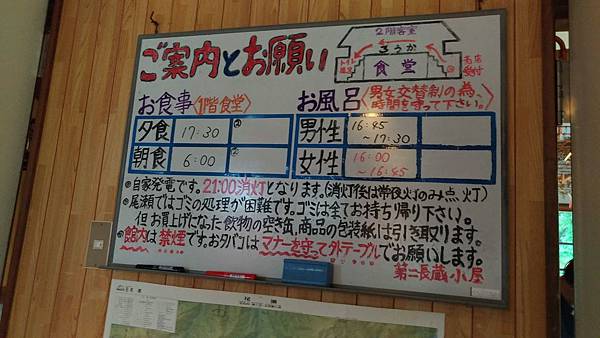 ご案内とお願い
2階客室
ろうか
食堂
売店
受付
お食事〈1階食堂〉
お風呂〈男女交替制の為、時間を守って下さい。〉
夕食 17:30 ②
朝食 6:00 ②
男性 16:45 ～17:30
女性 16:00 ～16:45
◎自家発電です。21:00消灯となります。(消灯後は常夜灯のみ点灯)
◎尾瀬ではゴミの処理が困難です。ゴミは全てお持ち帰り下さい。
但お買上げになった飲物の空き缶、商品の包装紙は引き取ります。
◎館内は禁煙です。おタバコはマナーを守って外テーブルでお願いします。
第二長蔵小屋
尾瀬